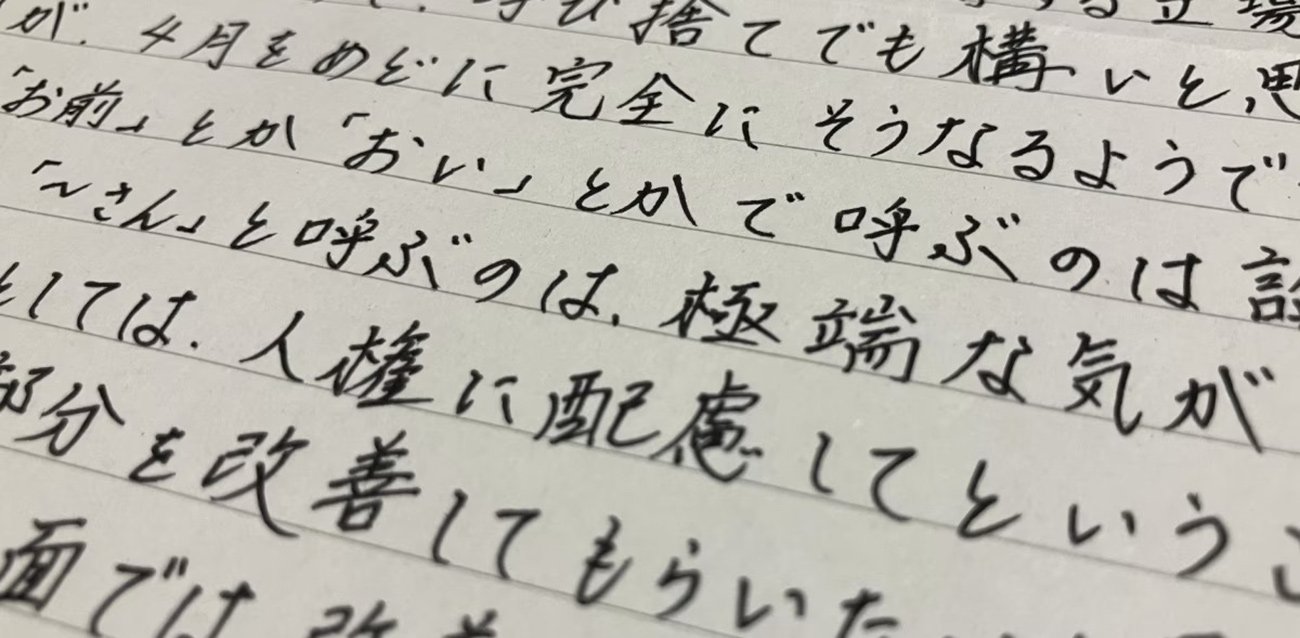 呼び捨てでも構いと思
が、4月をめどに完全にそうなるようで
「お前」とか「おい」とかで呼ぶのは
「〜さん」と呼ぶのは、極端な気が
としては、人権に配慮してという
部分を改善してもらいた
面では改善